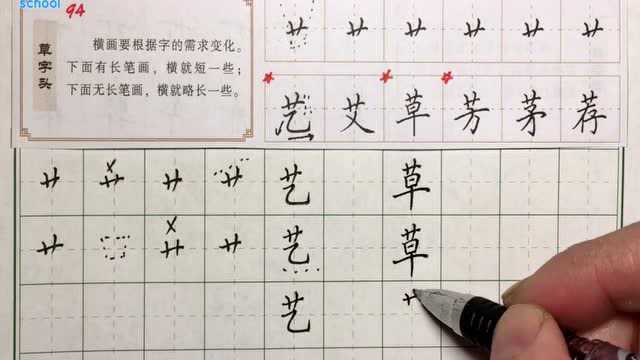 school 94
草字头
横画要根据字的需求变化。
下面有长笔画，横就短一些；
下面无长笔画，横就略长一些。
艹 艹 艹 艹 艹 艹
艺 艾 草 芳 茅 荐
艹 艹 艹 艹 艺 草
艹 艹 艹 艺 草
艺